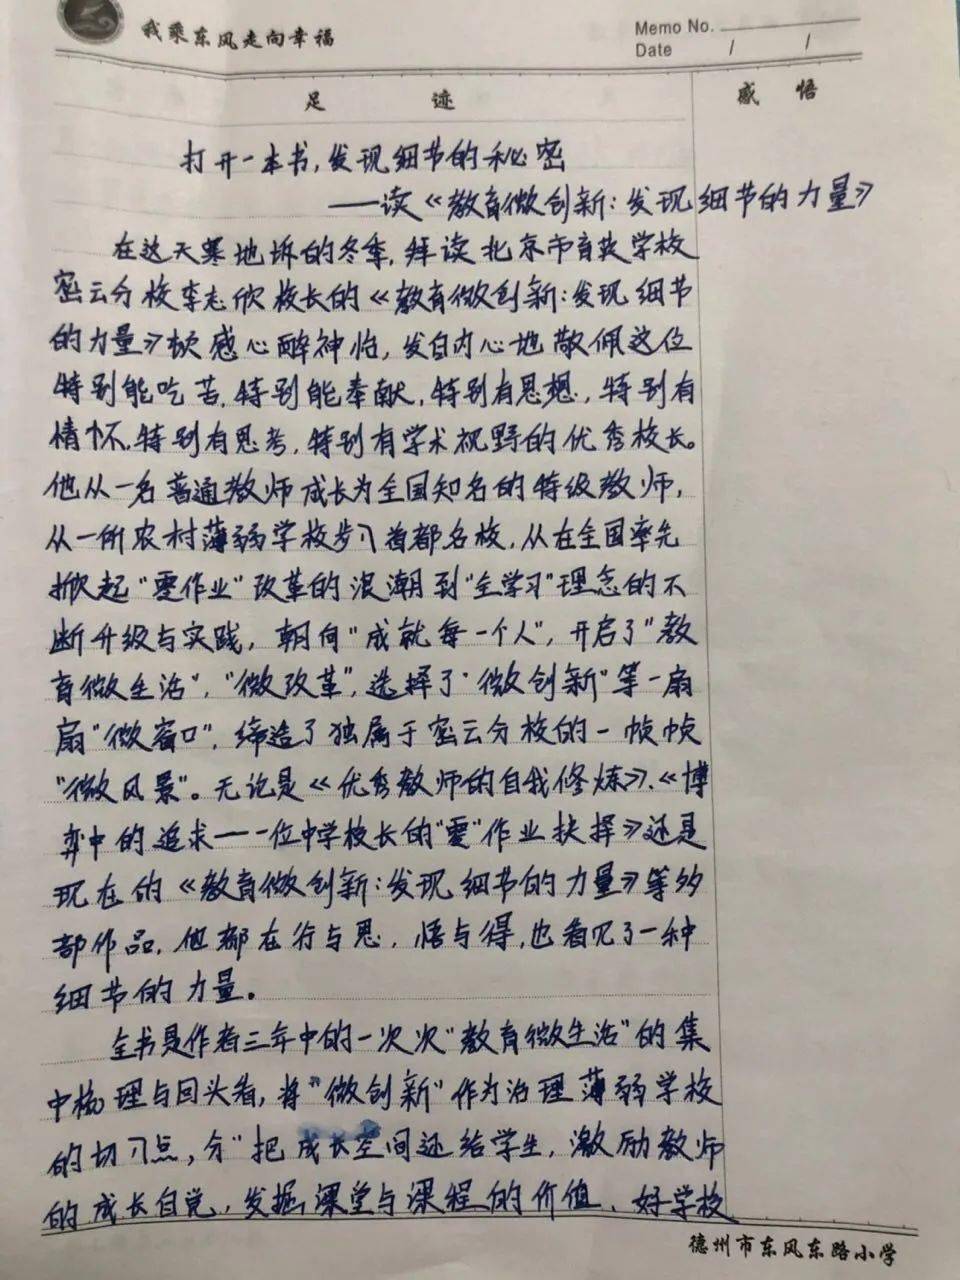 我乘东风走向幸福
Memo No.
Date / /
足迹 感悟
打开一本书,发现细节的秘密
——读《教育微创新:发现细节的力量》
在这天寒地坼的冬季,拜读北京市育英学校
密云分校李志欣校长的《教育微创新:发现细节
的力量》顿感心醉神怡,发自内心地敬佩这位
特别能吃苦,特别能奉献,特别有思想,特别有
情怀,特别有思考,特别有学术视野的优秀校长。
他从一名普通教师成长为全国知名的特级教师,
从一所农村薄弱学校步入首都名校,从在全国率先
掀起"零作业"改革的浪潮到"全学习"理念的不
断升级与实践,朝向"成就每一个人",开启了"教
育微生活","微改革",选择了"微创新"等一扇
扇"微窗口",缔造了独属于密云分校的一帧帧
"微风景"。无论是《优秀教师的自我修炼》、《博
弈中的追求——一位中学校长的"零"作业抉择》还是
现在的《教育微创新:发现细节的力量》等多
部作品,他都在行与思,悟与得,也看见了一种
细节的力量。
全书是作者三年中的一次次"教育微生活"的集
中梳理与回头看,将"微创新"作为治理薄弱学校
的切入点,分"把成长空间还给学生,激励教师
的成长自觉,发掘课堂与课程的价值、好学校
德州市东风东路小学